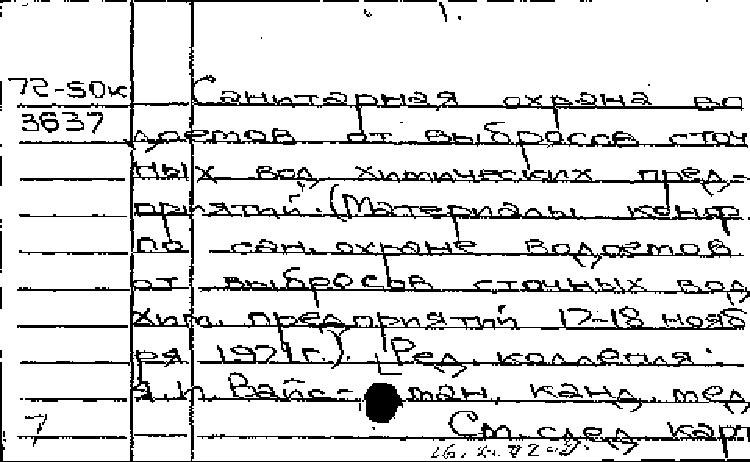 72-50к Санитарная охрана во
3637 доемов от выбросов сточ
ных вод химических пред-
приятий. (Материалы конф.
по сан. охране водоемов
от выбросов сточных вод
хим. предприятий 17-18 нояб
ря 1971 г.). [Ред. коллегия:
Я.И. Вайс- ман, канд. мед
7 См. след. карт